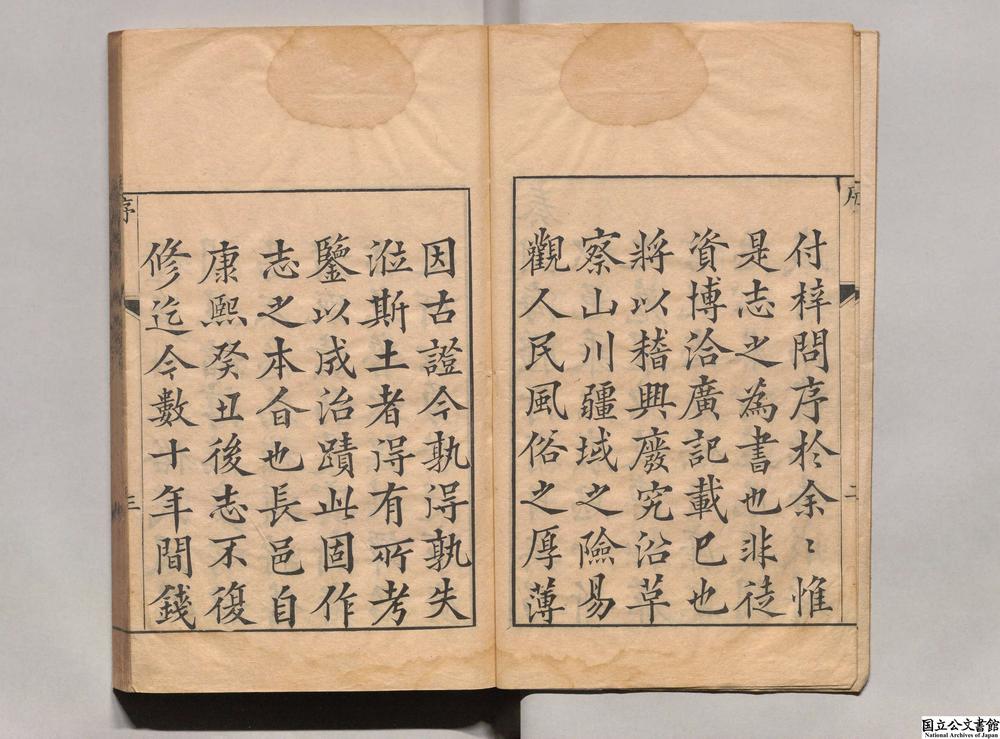 序
二
付梓問序於余〻惟
是志之為書也非徒
資博洽廣記載已也
將以稽興廢究沿革
察山川疆域之險易
觀人民風俗之厚薄
因古證今孰得孰失
涖斯土者得有所考
鑒以成治蹟此固作
志之本旨也長邑自
康熙癸丑後志不復
修迄今數十年間錢
序
三
国立公文書館
National Archives of Japan